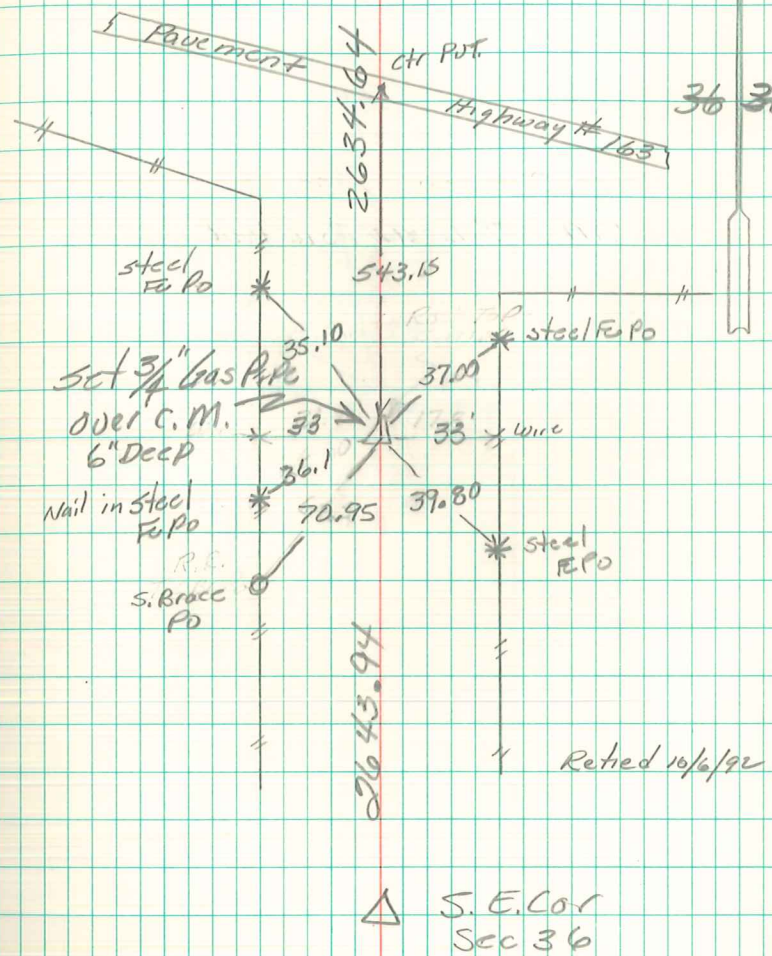 Pavement
Highway # 163
ctr PVT.
2634.64
36
543.15
steel
Fe Po
35.10
steel Fe Po
37.00
Set 3/4" Gas Pipe
over C.M.
6" Deep
33
33'
wire
36.1
Nail in steel
Fe Po
70.95
39.80
steel
Fe Po
R.R.
S. Brace
Po
2643.94
Retied 10/6/92
S. E. Cor
Sec 36